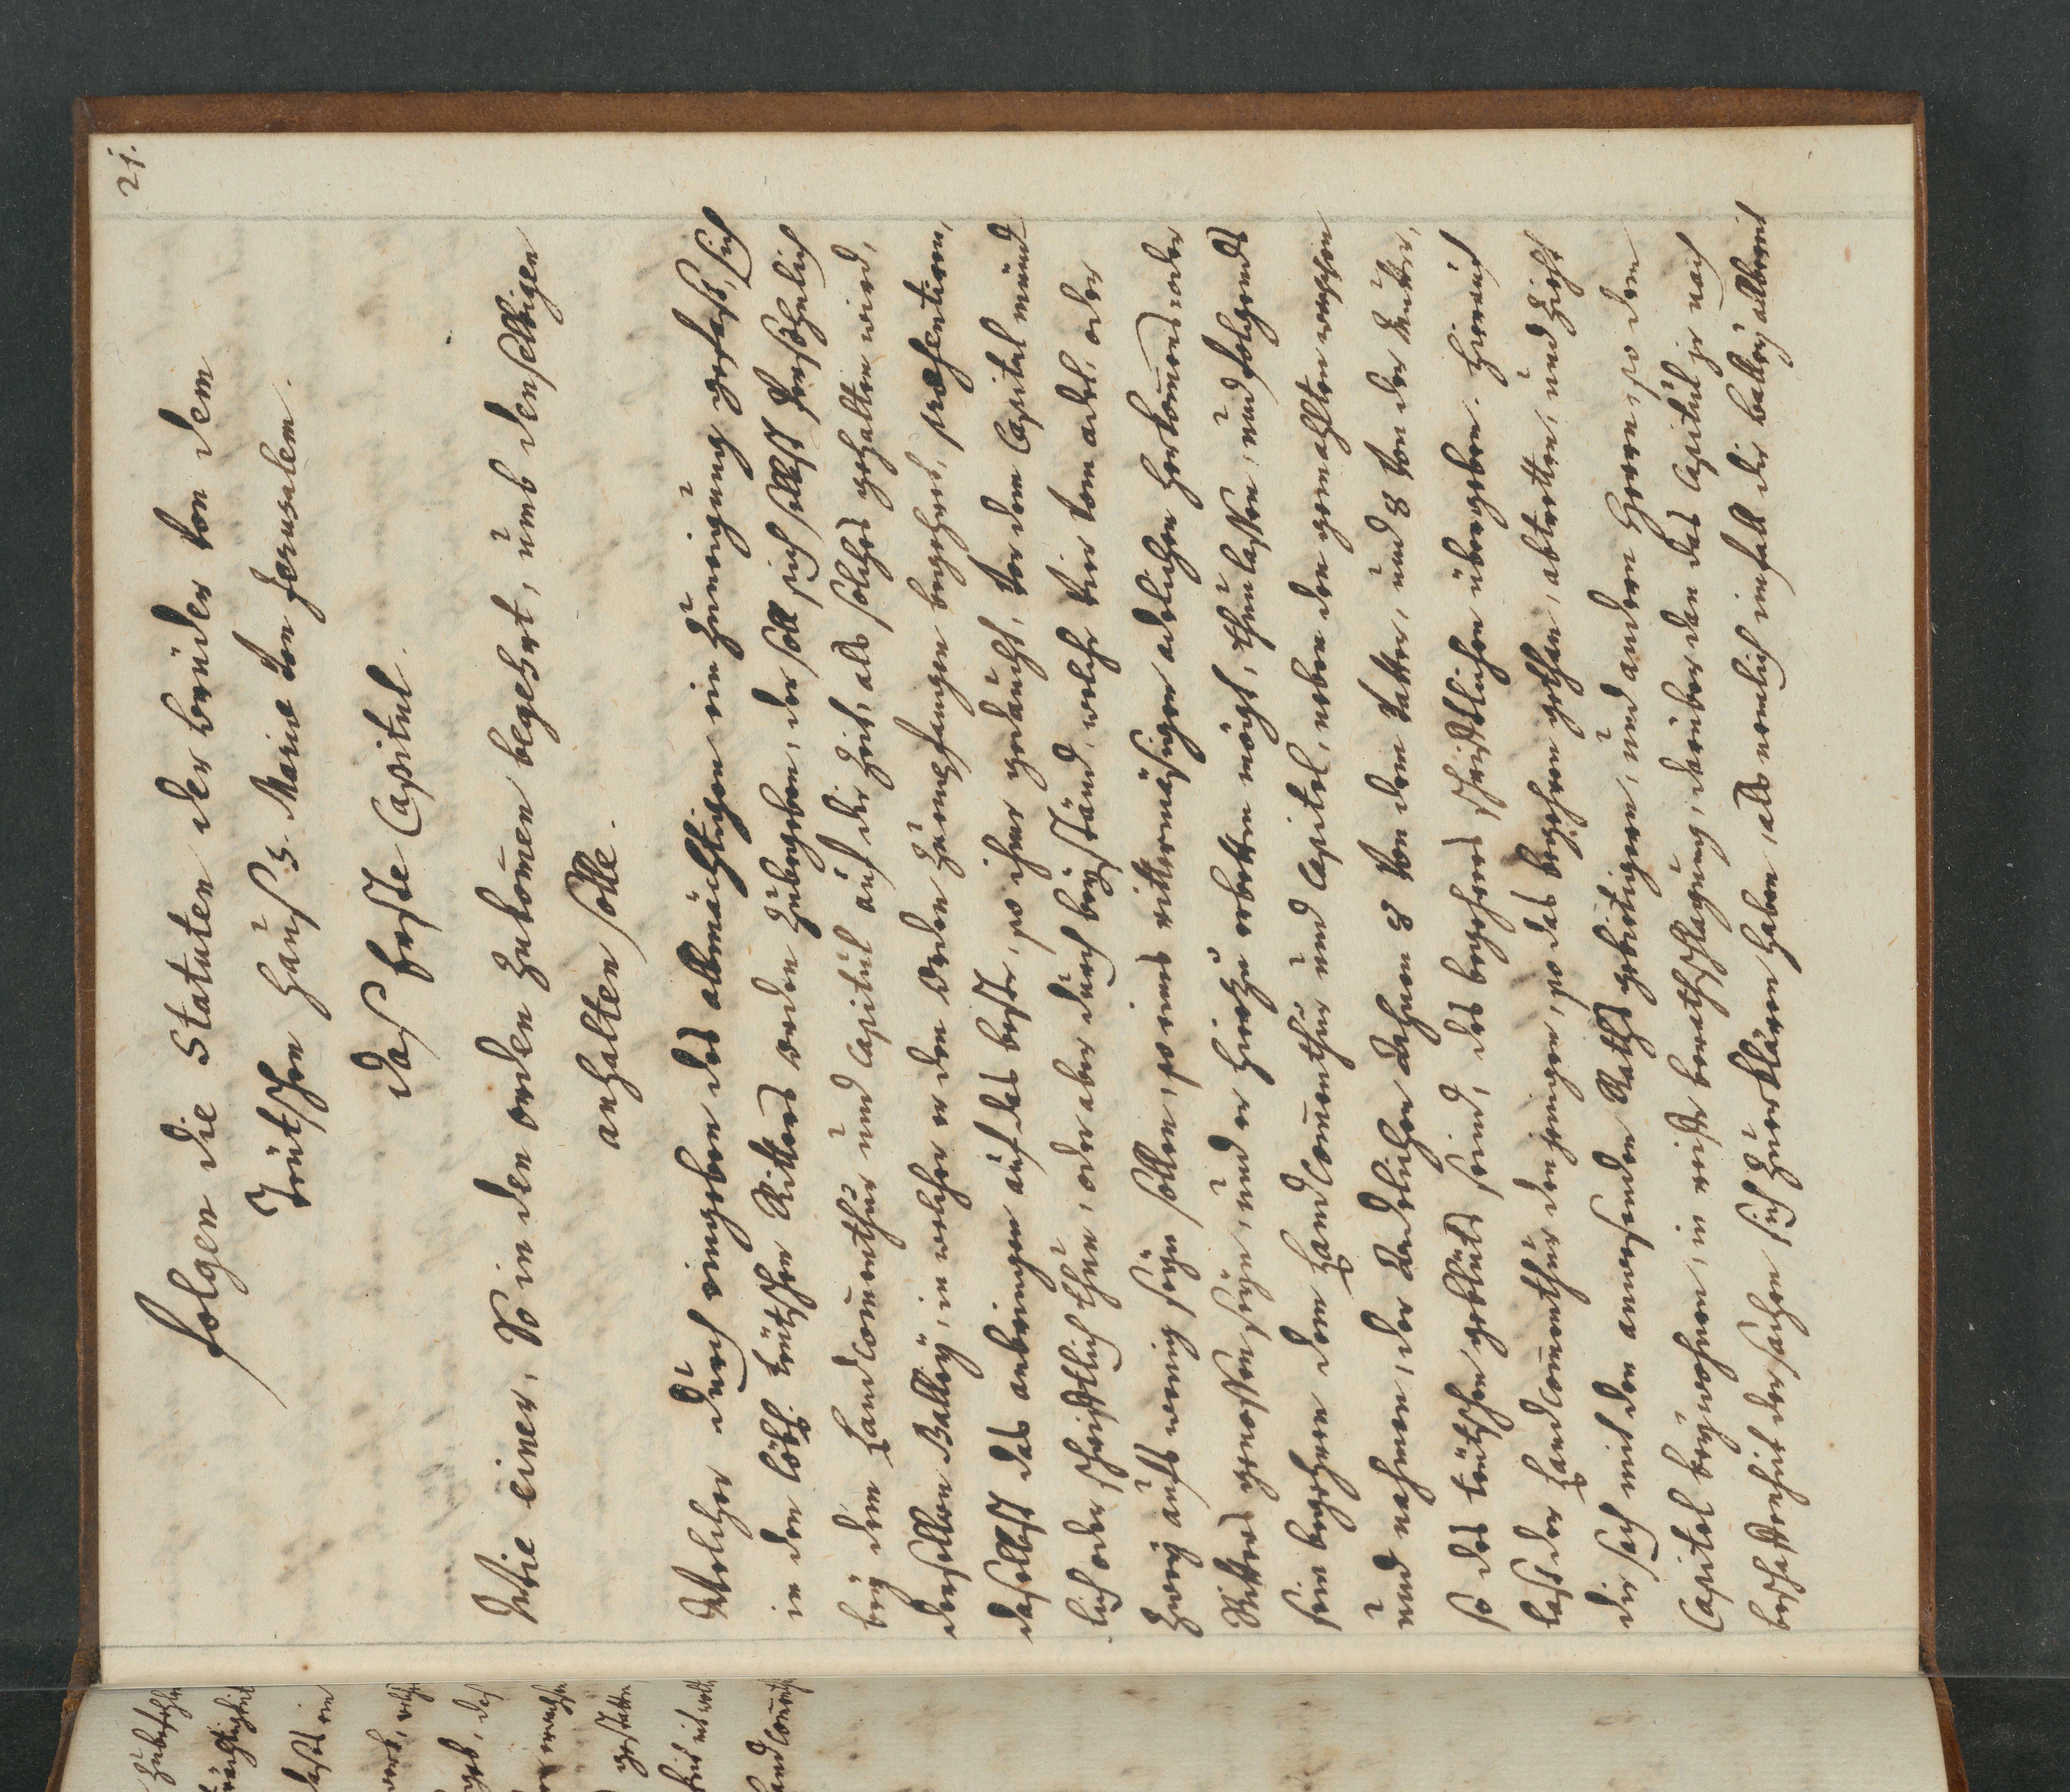 21.
folgen die Statuten der brüder von dem
Teütschen Hauß S. Mariæ von Jerusalem.
Daß Erste Capitul.
Wie einer, So in den orden zukom̄en begehrt, umb denselbigen
anhalten solle.
Welcher durch eingeben des allmächtigen ein zuneigung gefaßt, sich
in den löbl. teütschen Ritters orden zubegeben, der soll sich selbst persöhnlich
bey dem Landcom̄enthur und Capitul auf die Zeit, als solches gehalten wird,
derselben Balley, in welcher er den orden zuempfangen begehret, præsentiren,
daselbst das anbringen auf das beste, so ihme gedäucht, vor dem Capitul mündlich
oder schrifftlich thun, oder aber durch beystand, welche vier vom adel, oder
zwey aufs wenig seyn sollen, so eines rittermäsigen adelichen herkom̄ens oder
Ritters genossen seyn, und er hierzu erbetten mögt, thun lassen, und folgends
sein begehren dem Landcom̄enthur und Capitel, neben den gemahlten wappen
und nahmen, der Adelichen Ahnen 8 von dem Vatter, und 8 von der Mutter,
so des teütschen geblüts seind, des begehrens schrifftlichen übergeben. Hierauf
last der Landcom̄enthur denjenigen, so das begehren gethan, abtretten, und zieht
die sach mit den anwesenden Raths gebietigern, und andern Herren, so dem
Capitel beywohnen, in reiffe berathschlagung, darüber dan das Capitul je nach
beschaffenheit der sachen sich zuerklären haben, als nemlich imfall die balley albereit